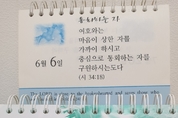 통회하는 자
여호와는
마음이 상한 자를
가까이 하시고
6월 6일
중심으로 통회하는 자를
구원하시는도다
(시 34:18)
The LORD is close to the brokenhearted and saves those who